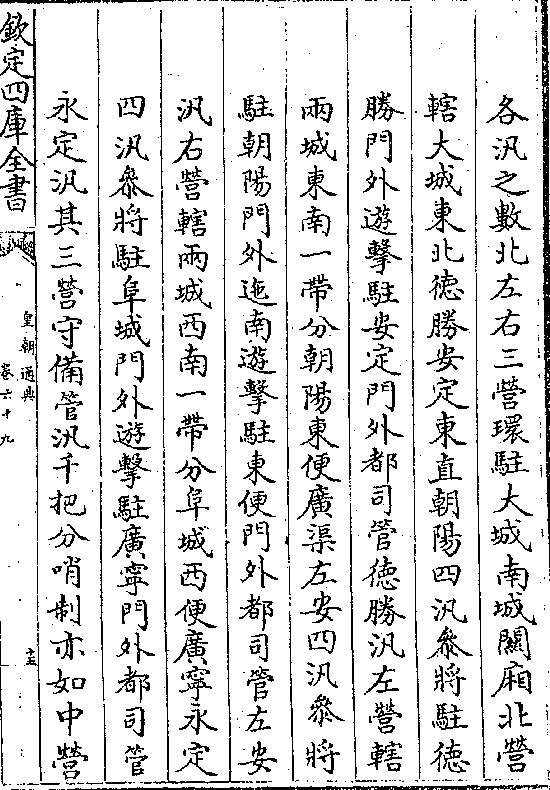 各汛之數北左右三營環駐大城南城關廂北營
轄大城東北徳勝安定東直朝陽四汛叅將駐徳
勝門外遊擊駐安定門外都司管徳勝汛左營轄
兩城東南一帶分朝陽東便廣渠左安四汛叅將
駐朝陽門外迤南遊擊駐東便門外都司管左安
汛右營轄兩城西南一帶分阜城西便廣寧永定
四汛叅將駐阜城門外遊擊駐廣寧門外都司管
永定汛其三營守備管汛千把分哨制亦如中營
欽定四庫全書
皇朝通典
卷六十九
十五